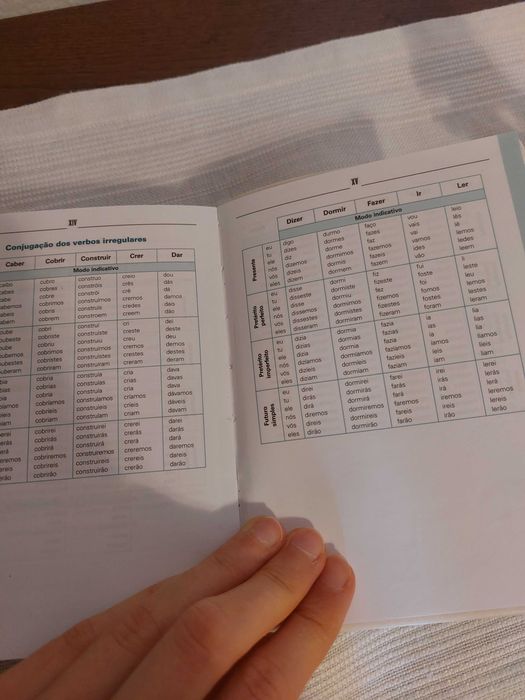 XIV
Conjugação dos verbos irregulares
Caber Cobrir Construir Crer Dar
Modo indicativo
caibo cubro construo creio dou
cabes cobres constróis crês dás
cabe cobre constrói crê dá
cabemos cobrimos construímos cremos damos
cabeis cobris construís credes dais
cabem cobrem constroem creem dão
cobri construí cri dei
coubeste cobriste construíste creste deste
coube cobriu construiu creu deu
coubemos cobrimos construímos cremos demos
coubestes cobristes construístes crestes destes
couberam cobriram construíram creram deram
cobria construía cria dava
cobrias construías crias davas
cobria construía cria dava
cobríamos construíamos críamos dávamos
cobríeis construíeis críeis dáveis
cobriam construíam criam davam
cobrirei construirei crerei darei
cobrirás construirás crerás darás
cobrirá construirá crerá dará
cobriremos construiremos creremos daremos
cobrireis construireis crereis dareis
cobrirão construirão crerão darão
XV
Dizer Dormir Fazer Ir Ler
Modo indicativo
Presente
eu digo durmo faço vou leio
tu dizes dormes fazes vais lês
ele diz dorme faz vai lê
nós dizemos dormimos fazemos vamos lemos
vós dizeis dormis fazeis ides ledes
eles dizem dormem fazem vão leem
Pretérito perfeito
eu disse dormi fiz fui li
tu disseste dormiste fizeste foste leste
ele disse dormiu fez foi leu
nós dissemos dormimos fizemos fomos lemos
vós dissestes dormistes fizestes fostes lestes
eles disseram dormiram fizeram foram leram
Pretérito imperfeito
eu dizia dormia fazia ia lia
tu dizias dormias fazias ias lias
ele dizia dormia fazia ia lia
nós dizíamos dormíamos fazíamos íamos líamos
vós dizíeis dormíeis fazíeis íeis líeis
eles diziam dormiam faziam iam liam
Futuro simples
eu direi dormirei farei irei lerei
tu dirás dormirás farás irás lerás
ele dirá dormirá fará irá lerá
nós diremos dormiremos faremos iremos leremos
vós direis dormireis fareis ireis lereis
eles dirão dormirão farão irão lerão